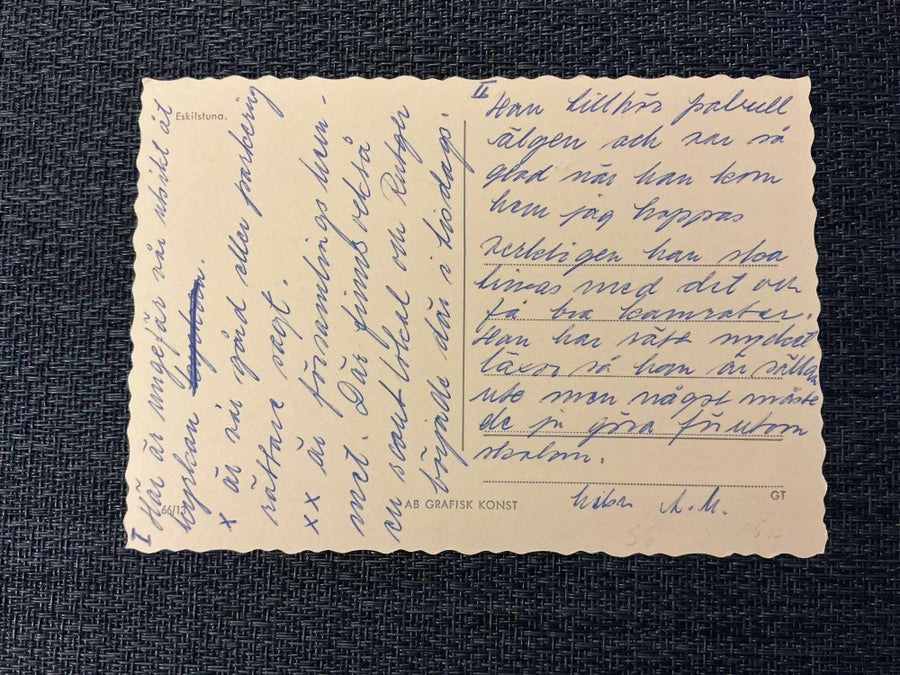 Eskilstuna.
I
Här är ungefär vår utsikt åt
kyrkan
x är vår gård eller parkering
rättare sagt.
xx är församlingshem-
met. Där finns också
en scoutlokal och Rutger
började där i tisdags.
66/13
AB GRAFISK KONST
II
Han tillhör patrull
älgen och var så
glad när han kom
hem jag hoppas
verkligen han ska
finnas med det och
få bra kamrater.
Han har rätt mycket
läxor så han är sällan
ute men något måste
de ju göra förutom
skolan.
A.M.
GT